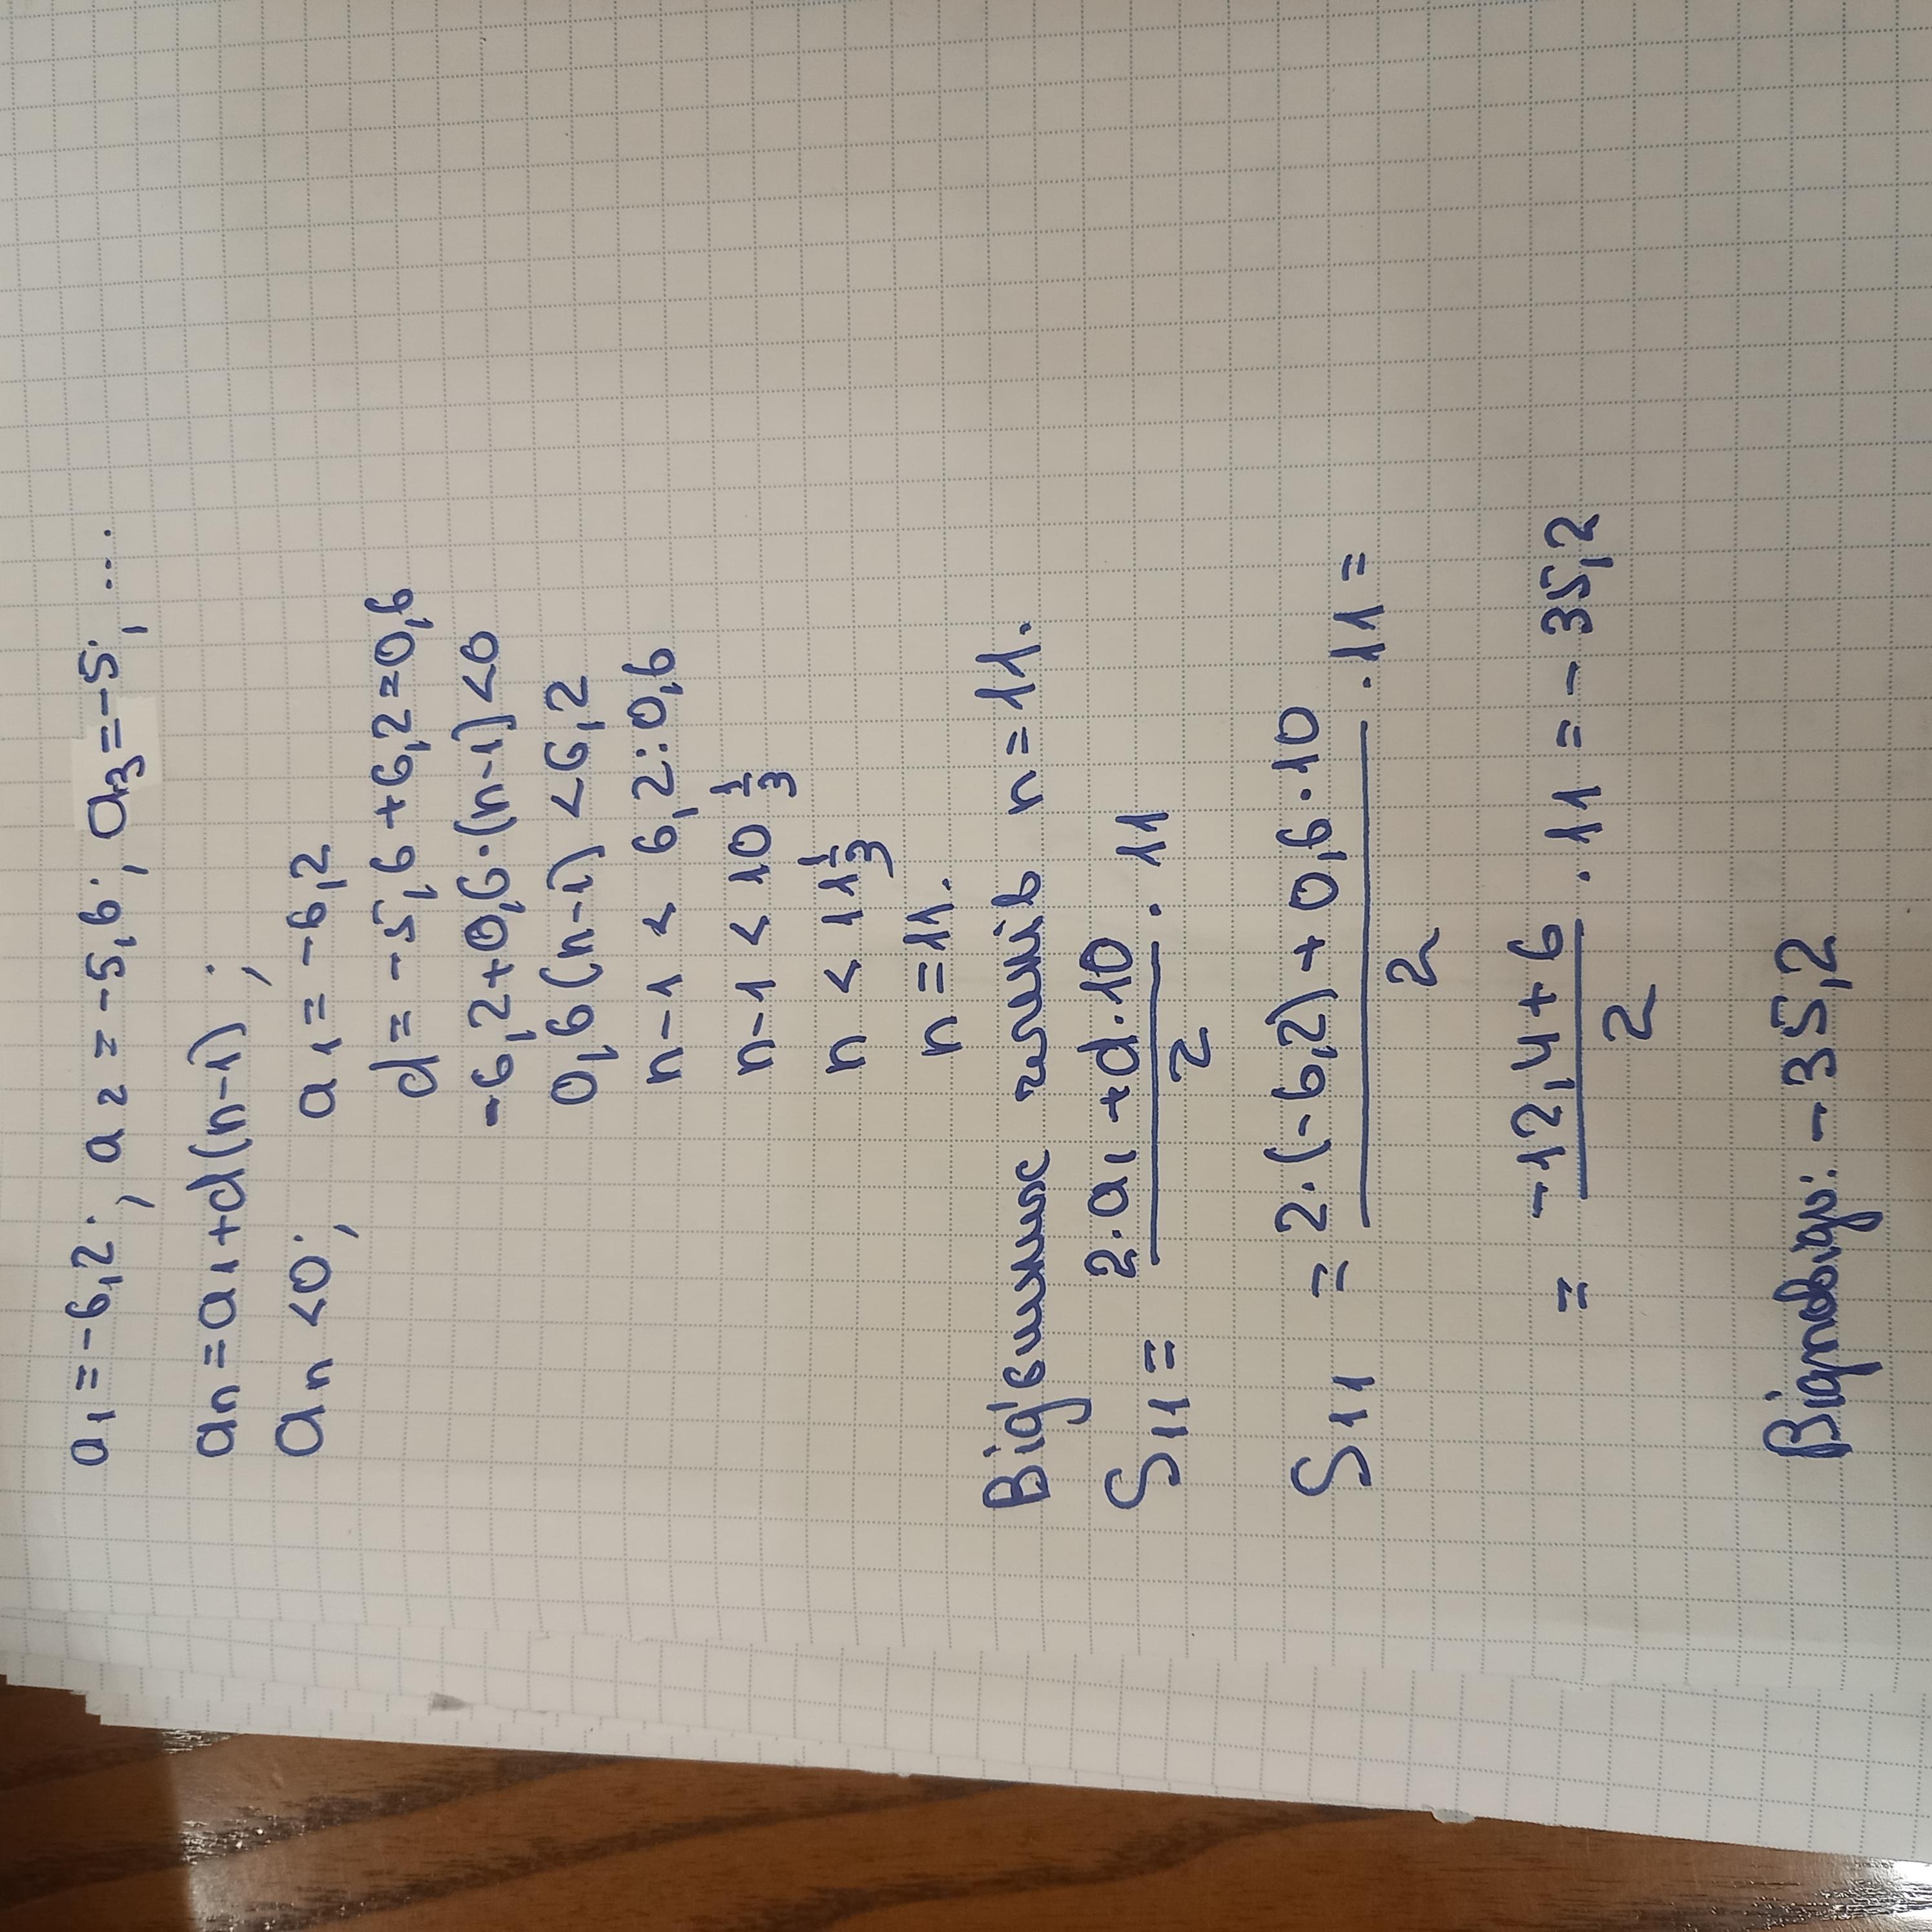 a₁ = -6,2; a₂ = -5,6; a₃ = -5; ...
aₙ = a₁ + d(n-1);
aₙ < 0; a₁ = -6,2
d = -5,6 + 6,2 = 0,6
-6,2 + 0,6·(n-1) < 0
0,6(n-1) < 6,2
n-1 < 6,2 : 0,6
n-1 < 10 1/3
n < 11 1/3
n = 11.
Від'ємних членів n = 11.
S₁₁ = (2·a₁ + d·10)/2 · 11
S₁₁ = (2·(-6,2) + 0,6·10)/2 · 11 =
= (-12,4 + 6)/2 · 11 = -35,2
Відповідь: -35,2